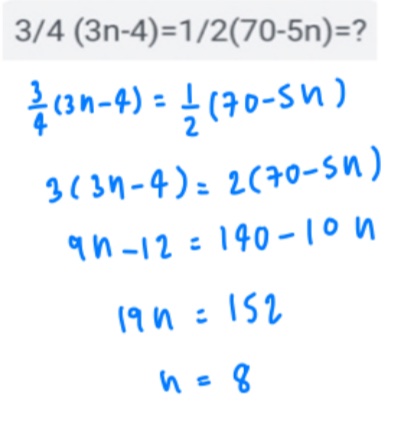 3/4 (3n-4)=1/2(70-5n)=?
3/4 (3n-4) = 1/2 (70-5n)
3(3n-4) = 2(70-5n)
9n-12 = 140-10n
19n = 152
n = 8